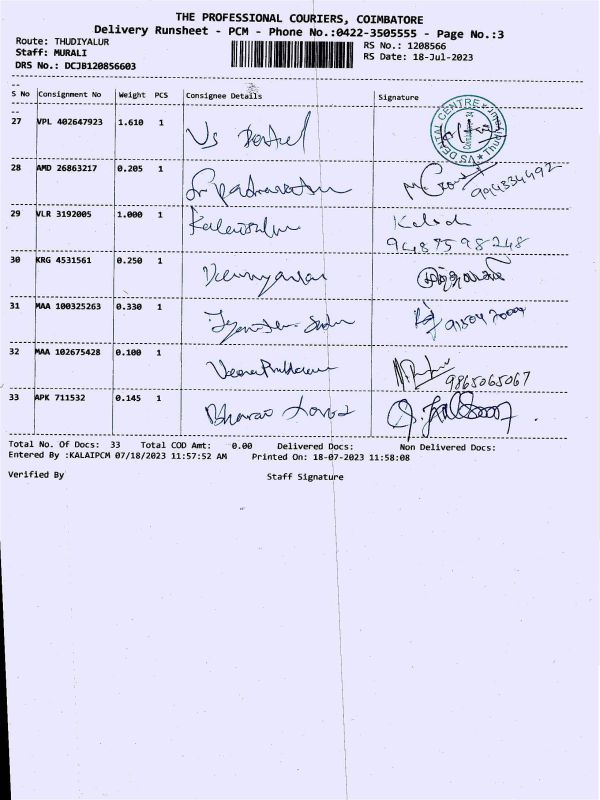 THE PROFESSIONAL COURIERS, COIMBATORE
Delivery Runsheet - PCM - Phone No.:0422-3505555 - Page No.:3
Route: THUDIYALUR RS No.: 1208566
Staff: MURALI RS Date: 18-Jul-2023
DRS No.: DCJB120856603
S No Consignment No Weight PCS Consignee Details Signature
27 VPL 402647923 1.610 1 Vs Dental VS DENTAL CENTRE
28 AMD 26863217 0.205 1 994334492
29 VLR 3192005 1.000 1 9487598248
30 KRG 4531561 0.250 1
31 MAA 100325263 0.330 1
32 MAA 102675428 0.100 1 9865065067
33 APK 711532 0.145 1
Total No. Of Docs: 33 Total COD Amt: 0.00 Delivered Docs: Non Delivered Docs:
Entered By :KALAIPCM 07/18/2023 11:57:52 AM Printed On: 18-07-2023 11:58:08
Verified By Staff Signature